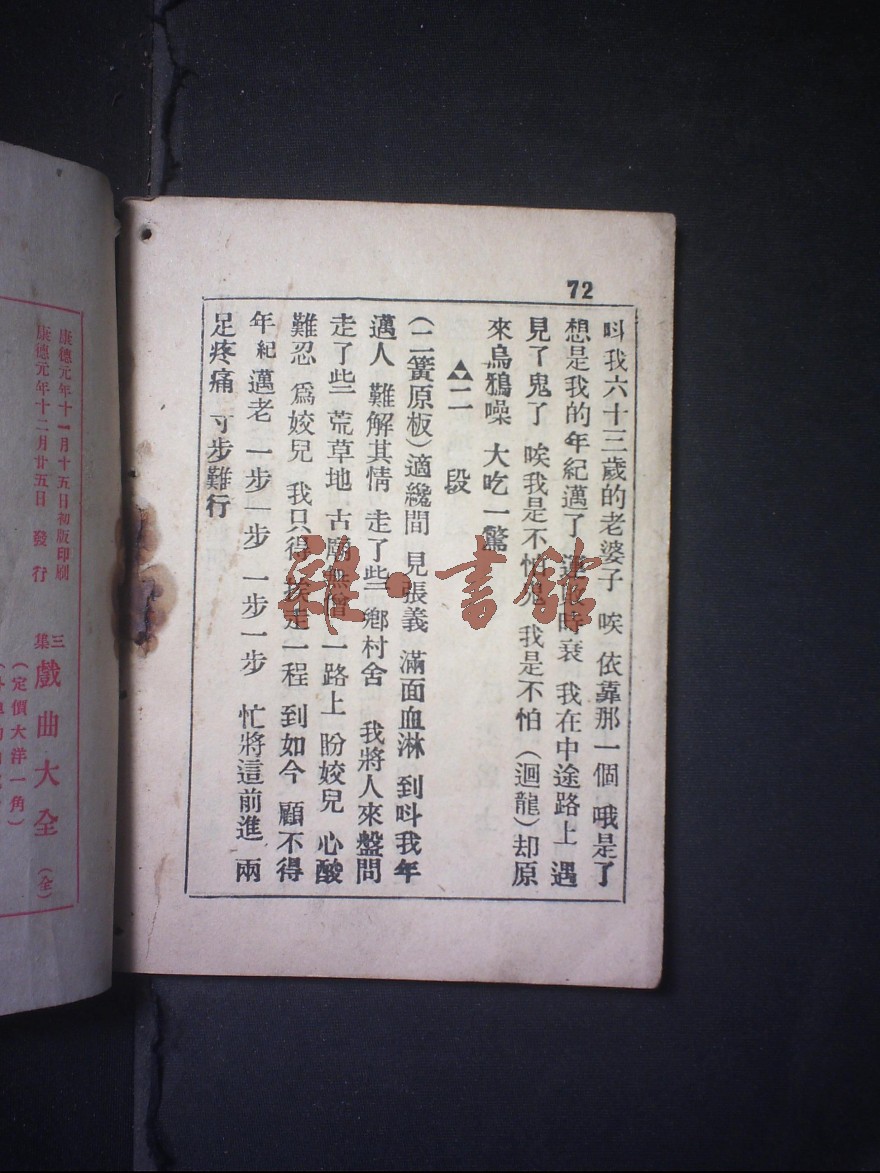 72
呌我六十三歲的老婆子 唉 依靠那一個 哦是了
想是我的年紀邁了 運 時衰 我在中途路上 遇
見了鬼了 唉我是不怕鬼 我是不怕（迴龍）却原
來烏鴉噪 大吃一驚
二 段
（二簧原板）適纔間 見張義 滿面血淋 到呌我年
邁人 難解其情 走了些 鄉村舍 我將人來盤問
走了些 荒草地 古廟無僧 一路上 盼姣兒 心酸
難忍 爲姣兒 我只得 走一程 到如今 顧不得
年紀邁老 一步一步 一步一步 忙將這前進 兩
足疼痛 寸步難行
雜·書館
康德元年十一月十五日初版印刷
康德元年十二月廿五日 發行
三集 戲曲大全（全）
（定價大洋一角）